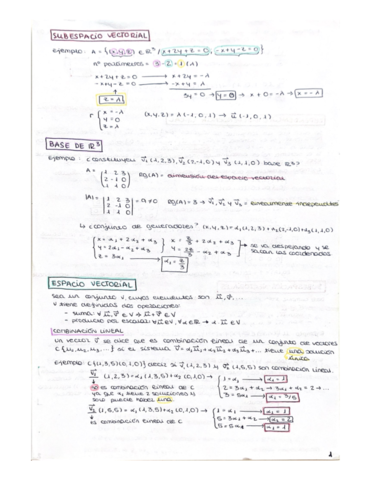 SUBESPACIO VECTORIAL
ejemplo: A = {(x,y,z) ∈ R³ / x+2y+z=0, -x+y-z=0}
nº parámetros = 3-2 = 1 (λ)
x+2y+z=0 → x+2y=-λ
-x+y-z=0 → -x+y=λ
z=λ
3y=0 → y=0 → x+0=-λ → x=-λ
r { x=-λ
y=0
z=λ
(x,y,z) = λ(-1,0,1) → u⃗(-1,0,1)
BASE DE R³
Ejemplo: ¿constituyen v⃗₁(1,2,3), v⃗₂(2,-1,0) y v⃗₃(1,1,0) base R³?
A = (1 2 3
2 -1 0
1 1 0)
Rg(A) = dimensión del espacio vectorial
|A| = |1 2 3
2 -1 0
1 1 0| = 9 ≠ 0
Rg(A)=3 → v⃗₁, v⃗₂ y v⃗₃ = linealmente independientes
↳ ¿conjunto de generadores? (x,y,z) = α₁(1,2,3)+α₂(2,-1,0)+α₃(1,1,0)
x = α₁+2α₂+α₃
y = 2α₁-α₂+α₃
z = 3α₁
se va despejando y se sacan las coordenadas
ESPACIO VECTORIAL
Sea un conjunto V, cuyos elementos son u⃗, v⃗...
V tiene definidas dos operaciones:
- suma: ∀ u⃗, v⃗ ∈ V ⇒ u⃗+v⃗ ∈ V
- producto por escalar: ∀ u⃗ ∈ V, ∀ α ∈ R → α u⃗ ∈ V
COMBINACIÓN LINEAL
un vector v⃗ se dice que es combinación lineal de un conjunto de vectores
C {u₁, u₂, u₃...} si el sistema: v⃗ = α₁u⃗₁+α₂u⃗₂+α₃u⃗₃+... tiene una solución
única
Ejemplo: C {(1,3,5)(0,1,0)} decir si v⃗₁(1,2,3) y v⃗₂(1,5,5) son combinación lineal.
v⃗₁ (1,2,3) = α₁(1,3,5)+α₂(0,1,0)
1=α₁ → α₁=1
2=3α₁+α₂
3=5α₁ → α₁=3/5
no es combinación lineal de C
ya que α₁ tiene 2 soluciones y
solo puede haber una
v⃗₂ (1,5,5) = α₁(1,3,5)+α₂(0,1,0)
1=α₁ → α₁=1
5=3α₁+α₂
5=5α₁ → α₁=1
es combinación lineal de C
1